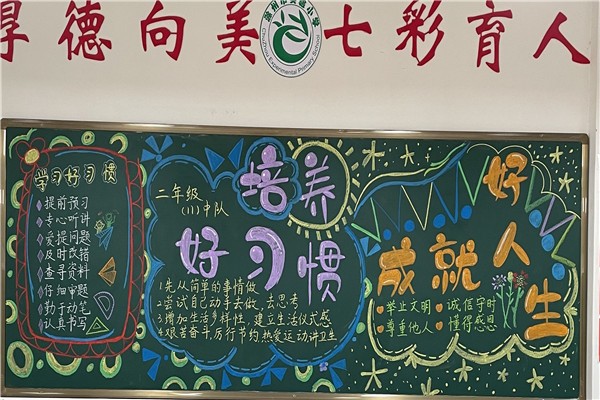 厚德向美 七彩育人
滁州市实验小学
Chuzhou Experimental Primary School
学习好习惯
提前预习
专心听讲
爱提问题
及时改错
查寻资料
仔细审题
勤于动笔
认真书写
二年级
(1)中队
培养
好习惯
1先从简单的事情做
2尝试自己动手去做、去思考
3增加生活多样性 建立生活仪式感
4艰苦奋斗,厉行节约,热爱运动讲卫生
好
成就人
生
举止文明 诚信守时
尊重他人 懂得感恩